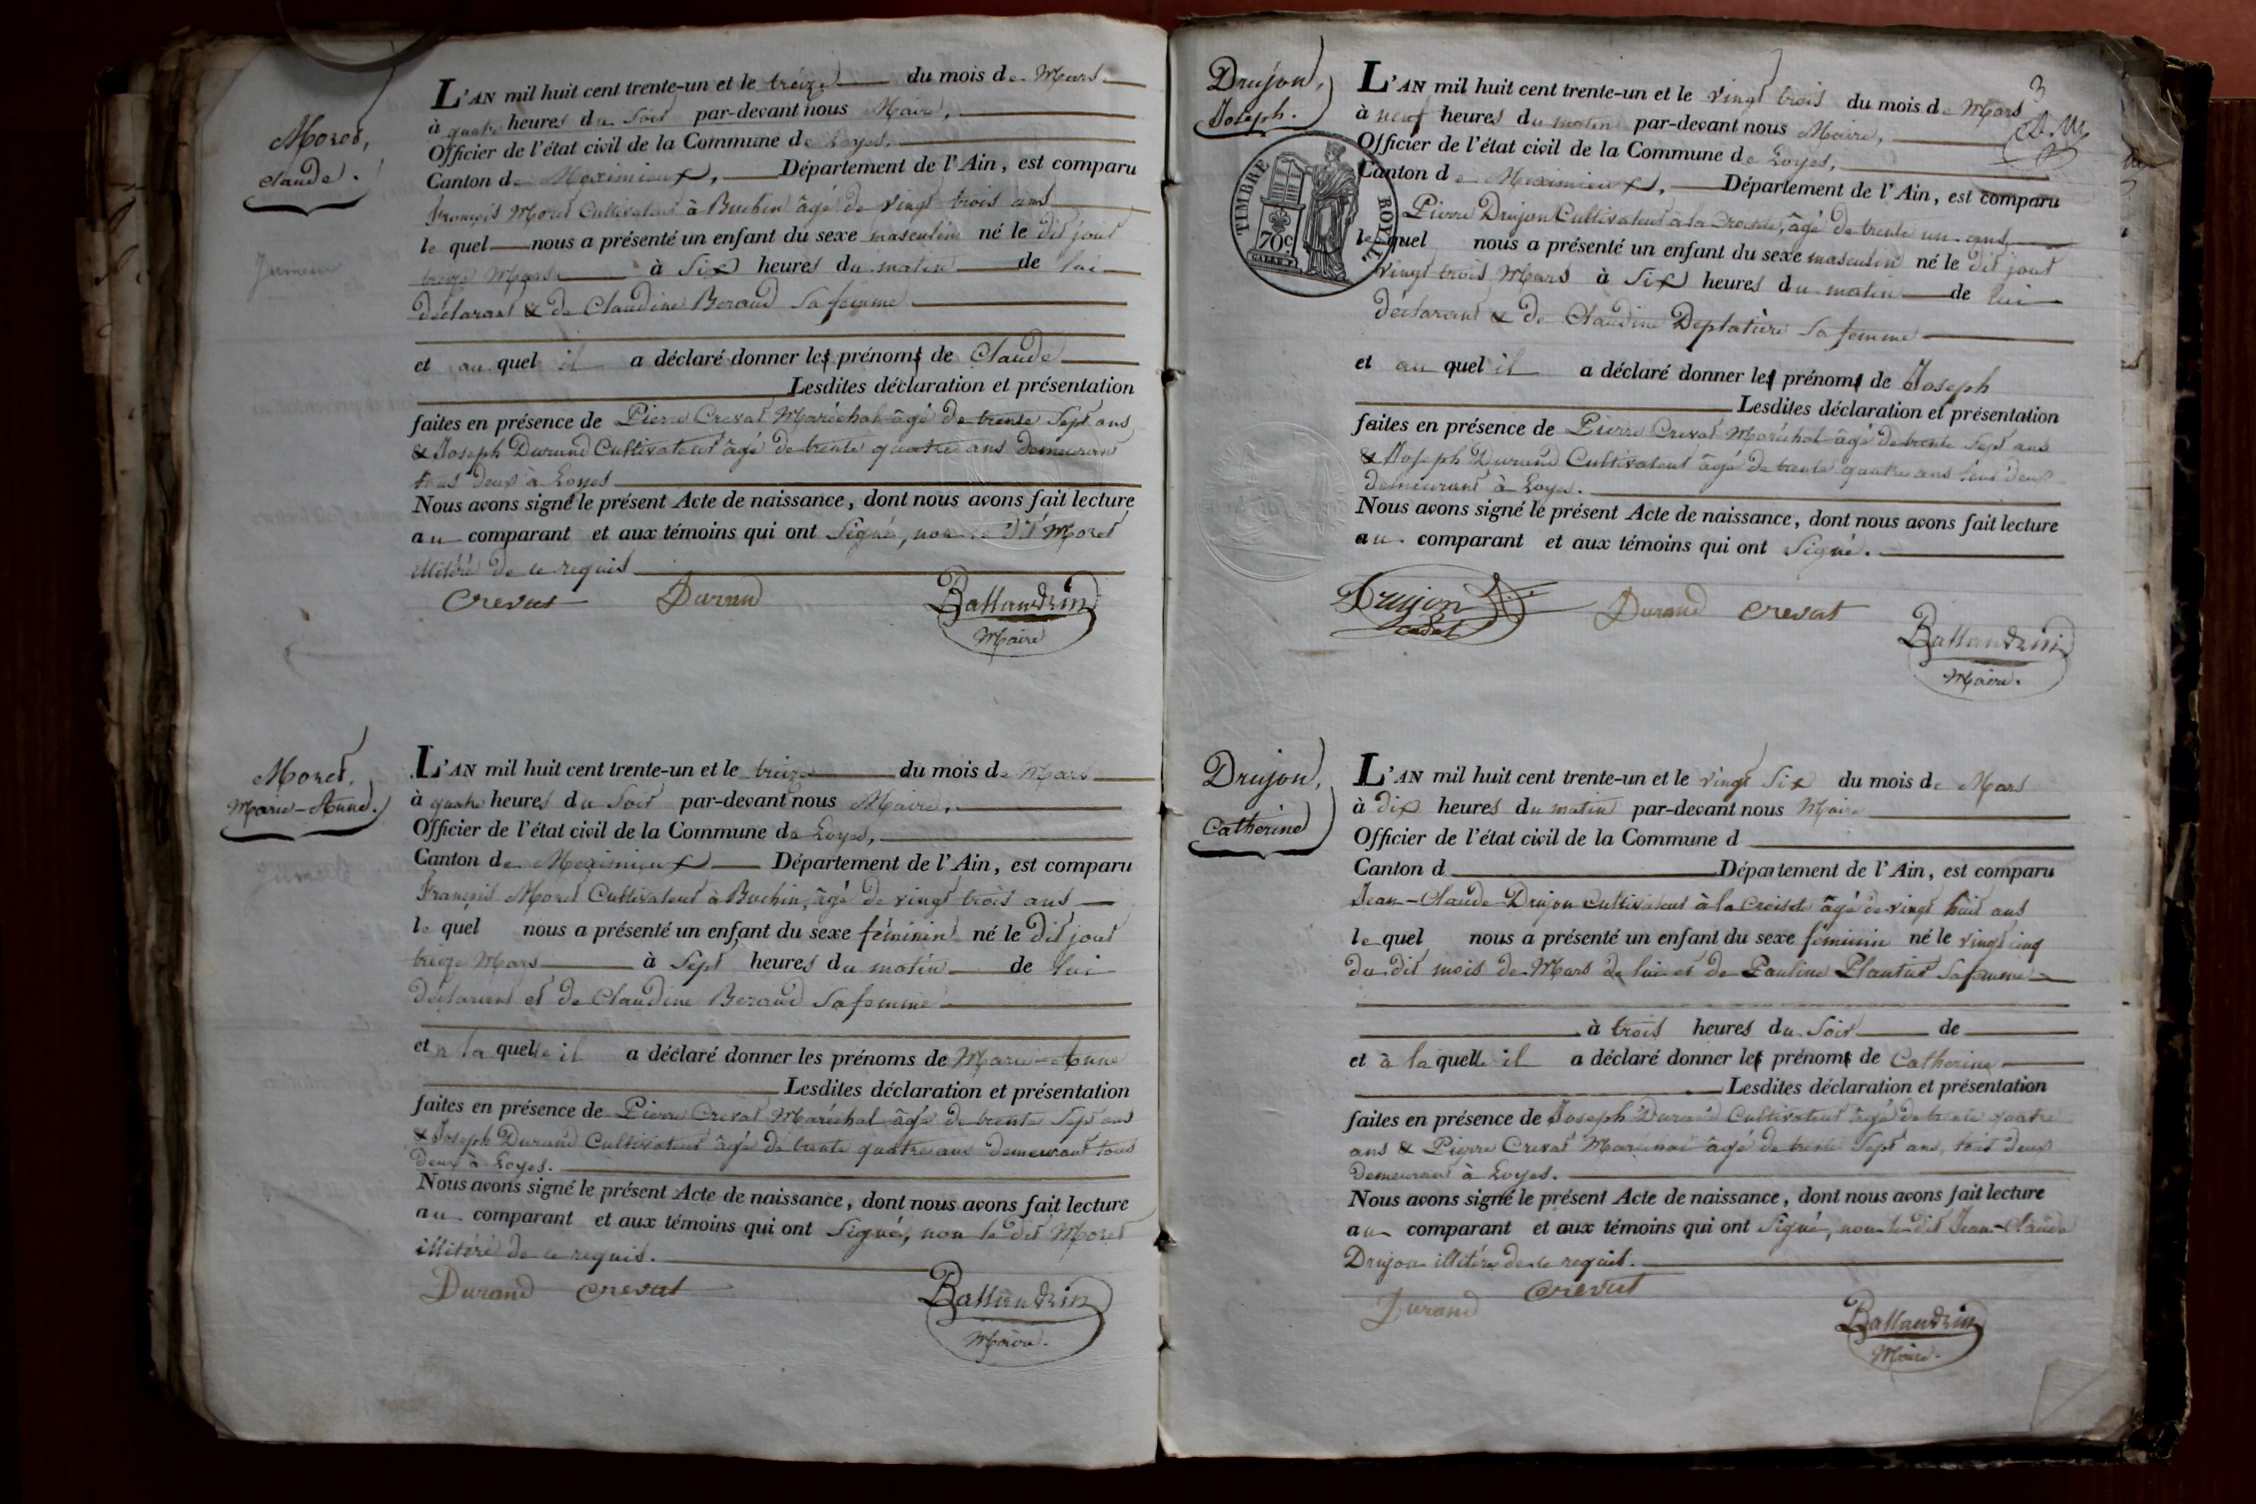 Moret,
Claude.
Jumeau
L'AN mil huit cent trente-un et le treize du mois de Mars
à quatre heures du soir par-devant nous Maire,
Officier de l'état civil de la Commune de Loyes,
Canton de Meximieux, Département de l'Ain, est comparu
François Moret Cultivateur à Buchin âgé de vingt trois ans
le quel nous a présenté un enfant du sexe masculin né le dit jour
treize Mars à Six heures du matin de lui
déclarant & de Claudine Beraud sa femme
et au quel il a déclaré donner les prénoms de Claude
Lesdites déclaration et présentation
faites en présence de Pierre Crevat Maréchal âgé de trente Sept ans
& Joseph Durand Cultivateur âgé de trente quatre ans demeurant
tous deux à Loyes
Nous avons signé le présent Acte de naissance, dont nous avons fait lecture
au comparant et aux témoins qui ont Signé, non le dit Moret
illitéré de ce requis
Crevat Durand Ballandrin
Maire
Moret,
Marie-Anne.
L'AN mil huit cent trente-un et le treize du mois de Mars
à quatre heures du Soir par-devant nous Maire,
Officier de l'état civil de la Commune de Loyes,
Canton de Meximieux Département de l'Ain, est comparu
François Moret Cultivateur à Buchin, âgé de vingt trois ans
le quel nous a présenté un enfant du sexe féminin né le dit jour
treize Mars à Sept heures du matin de lui
déclarant et de Claudine Beraud sa femme
et à la quelle il a déclaré donner les prénoms de Marie-Anne
Lesdites déclaration et présentation
faites en présence de Pierre Crevat Maréchal âgé de trente Sept ans
& Joseph Durand Cultivateur âgé de trente quatre ans demeurant tous
deux à Loyes.
Nous avons signé le présent Acte de naissance, dont nous avons fait lecture
au comparant et aux témoins qui ont Signé, non le dit Moret
illitéré de ce requis.
Durand Crevat Ballandrin
Maire.
3
Drujon,
Joseph.
TIMBRE ROYAL
70c
L'AN mil huit cent trente-un et le vingt trois du mois de Mars
à neuf heures du matin par-devant nous Maire,
Officier de l'état civil de la Commune de Loyes,
Canton de Meximieux, Département de l'Ain, est comparu
Pierre Drujon Cultivateur à la Croisée, âgé de trente un ans,
le quel nous a présenté un enfant du sexe masculin né le dit jour
vingt trois Mars à Six heures du matin de lui
déclarant & de Claudine Deplatière sa femme
et au quel il a déclaré donner les prénoms de Joseph
Lesdites déclaration et présentation
faites en présence de Pierre Crevat Maréchal âgé de trente Sept ans
& Joseph Durand Cultivateur âgé de trente quatre ans tous deux
demeurant à Loyes.
Nous avons signé le présent Acte de naissance, dont nous avons fait lecture
au comparant et aux témoins qui ont Signé.
Drujon cadet Durand Crevat
Ballandrin
Maire.
Drujon,
Catherine
L'AN mil huit cent trente-un et le vingt Six du mois de Mars
à dix heures du matin par-devant nous Maire
Officier de l'état civil de la Commune d
Canton d Département de l'Ain, est comparu
Jean-Claude Drujon Cultivateur à la Croisée âgé de vingt huit ans
le quel nous a présenté un enfant du sexe féminin né le vingt cinq
du dit mois de Mars de lui et de Pauline Plantier sa femme
à trois heures du Soir de
et à la quelle il a déclaré donner les prénoms de Catherine
Lesdites déclaration et présentation
faites en présence de Joseph Durand Cultivateur âgé de trente quatre
ans & Pierre Crevat Maréchal âgé de trente Sept ans, tous deux
demeurant à Loyes.
Nous avons signé le présent Acte de naissance, dont nous avons fait lecture
au comparant et aux témoins qui ont Signé, non le dit Jean-Claude
Drujon illitéré de ce requis.
Durand Crevat
Ballandrin
Maire.